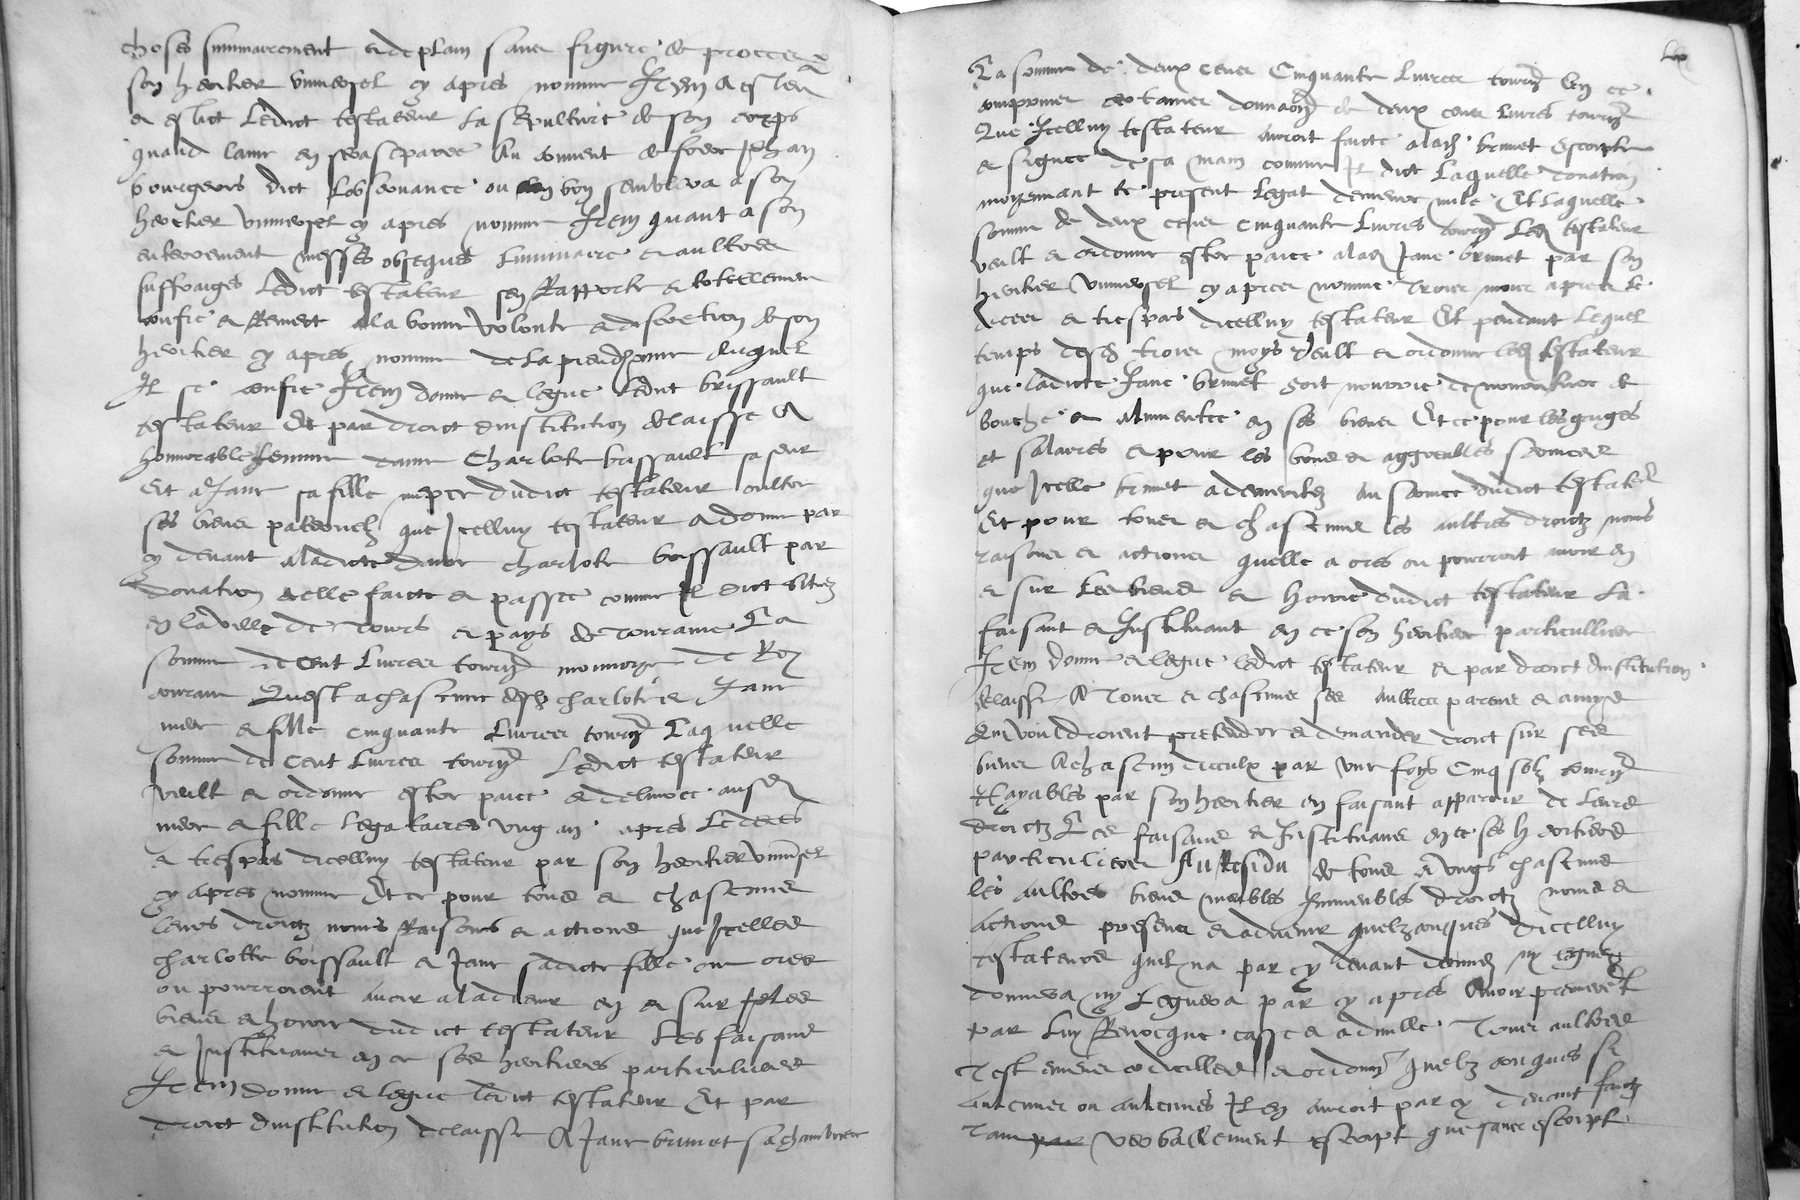 choses summairement et de plain sans figure de proces
son heritier universel cy apres nomme Item a esleu
et eslict ledict testateur la sepulture de son corps
quand lame en sera separee au convent de sainct Jehan
bourgeois dict lobservance ou bon semblera a son
heritier universel cy apres nomme Item quant a son
enterrement messes obseques luminaire et aultres
suffraiges ledict testateur sen rapporte et totellement
confie et remect a la bonne volonte et discretion de son
heritier cy apres nomme de la preudhomie duquel
Il se confie Item donne et legue ledict brissault
testateur Et par droict dinstitution delaisse A
honnorable femme dame Charlote brissault sa seur
Et a Jane sa fille niepce dudict testateur oultre
ses biens paternelz que Icelluy testateur a donne par
cy devant a ladicte dame charlote brissault par
donation a elle faicte et passee comme Il dict sitiez
en la ville de Tours et pays de Touraine La
somme de cent livres tourn monnoye de Roy
courant Quest a chascune desd charlote et Jane
mere et fille cinquante livres tourn Laquelle
somme de cent livres tourn Ledict testateur
veult et ordonne estre paiee et delivree ausd
mere et fille legataires ung an apres le deces
et trespas dicelluy testateur par son heritier universel
cy apres nomme Et ce pour tous et chascuns
leurs droictz noms Raisons et actions que Icelles
charlotte brissault et Jane sadicte fille ont ores
ou pourroient avoir a ladvenir en et sur les
biens et hoirie dudict testateur Les faisant
et Instituant en ce ses heritieres particulieres
Item donne et legue ledict testateur Et par
droict dinstitution delaisse A Jane brunet sa chambriere
La somme de deux cens Cinquante livres tourn En ce
comprenes et tames donnaon de deux cens livres tourn
Que Icelluy testateur auroit faicte a lad brunet escripte
et signee de sa main comme Il dict Laquelle donation
moyennant le present legat demeure nulle Et laquelle
somme de deux cens cinquante livres tourn Led testateur
veult et ordonne estre paiee a lad Jane brunet par son
heritier universel cy apres nomme Troys moys apres le
deces et trespas dicelluy testateur Et pendant lequel
temps desd troys moys veult et ordonne led testateur
que ladicte Jane brunet soit nourrie de nourriture de
bouche et alimentee en ses biens Et ce pour les guiges
et salaires et pour les bons et aggreables services
que Icelle brunet a demerites au service dudict testateur
Et pour tous et chascuns les aultres droictz noms
raisons et actions quelle a ores ou pourroit avoir en
et sur les biens et hoirie dudict testateur La
faisant et Instituant en ce son heritiere particulliere
Item donne et legue ledict testateur et par droict dinstitution
delaisse A Tous et chascuns ses aultres parens et amys
qui vouldroient pretendre et demander droict sur ses
biens A chascun diceulx par une foys Cinq solz tourn
Payables par son heritier en faisant apparoir de leurs
droictz Les faisans et Instituans en ce ses heritiers
particuliers Au Residu de tous A ungs chascuns
les aultres biens meubles Immeubles droictz noms et
actions presens et advenir quelzconques dicelluy
testateur quil na par cy devant donnez ny leguez
donnera ny leguera par cy apres Avoir premierement
par luy Revocque casse et adnulle Tous aultres
Testamens codicilles et ordonn quelzconques si
aulcuns ou aulcunes Il en auroit par cy devant faictz
tant verballement escript que sans escript